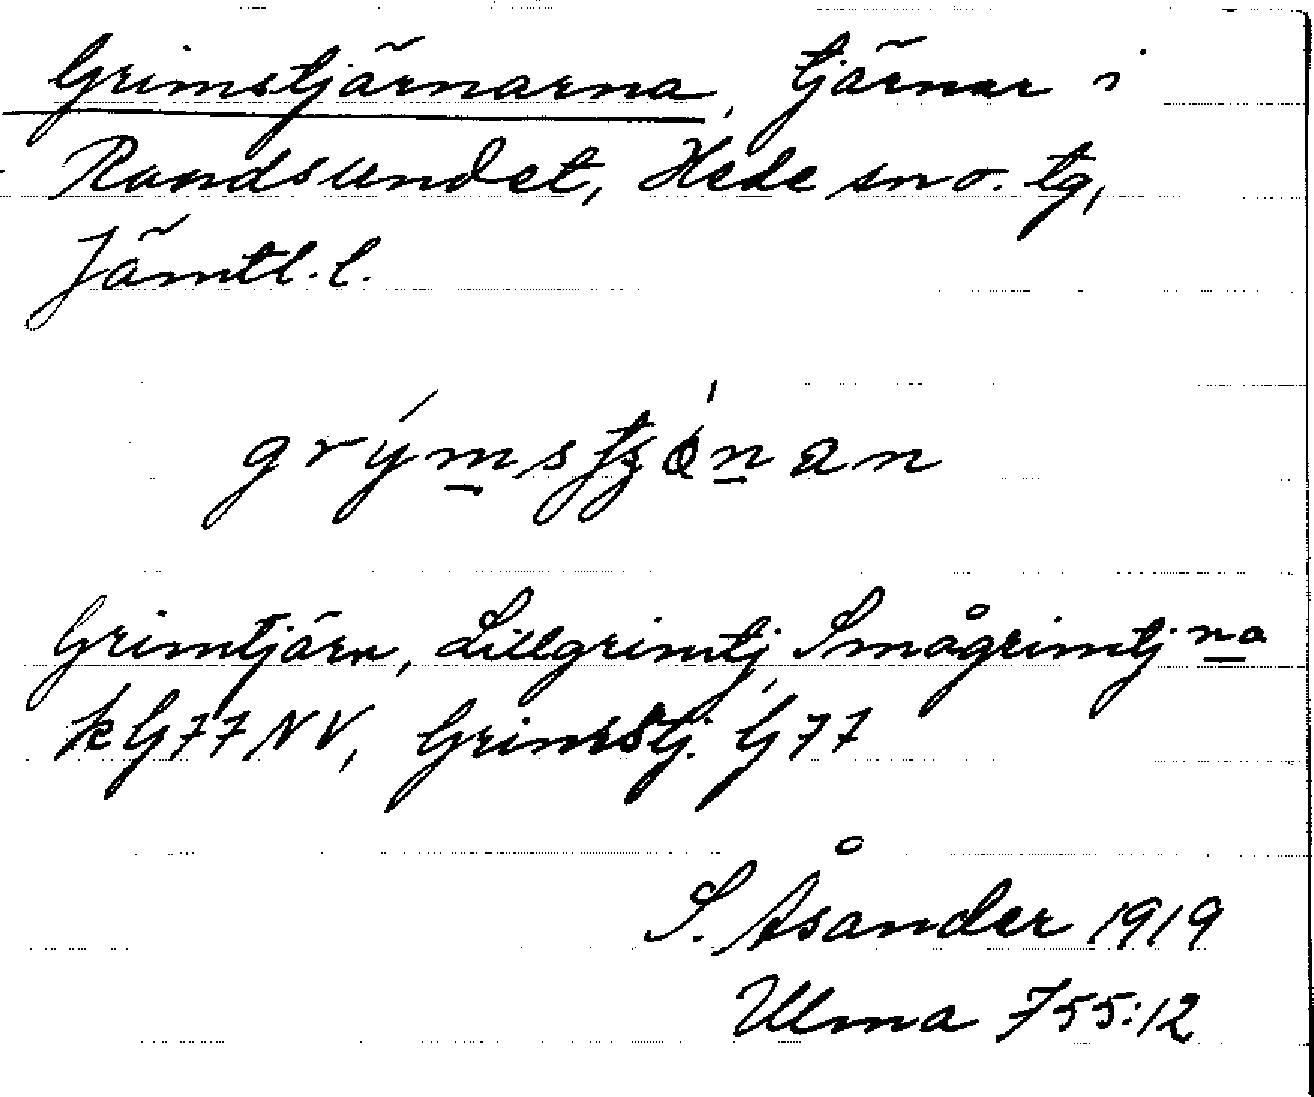 Grimstjärnarna, tjärnar i
Randsundet, Hede sn o. tg,
Jämtl. l.
Grimtjärn, Lillgrimtj, Smågrimtj na
k G77NV, Grimstj. G77
S. Åsander 1919
Ulma 755:12